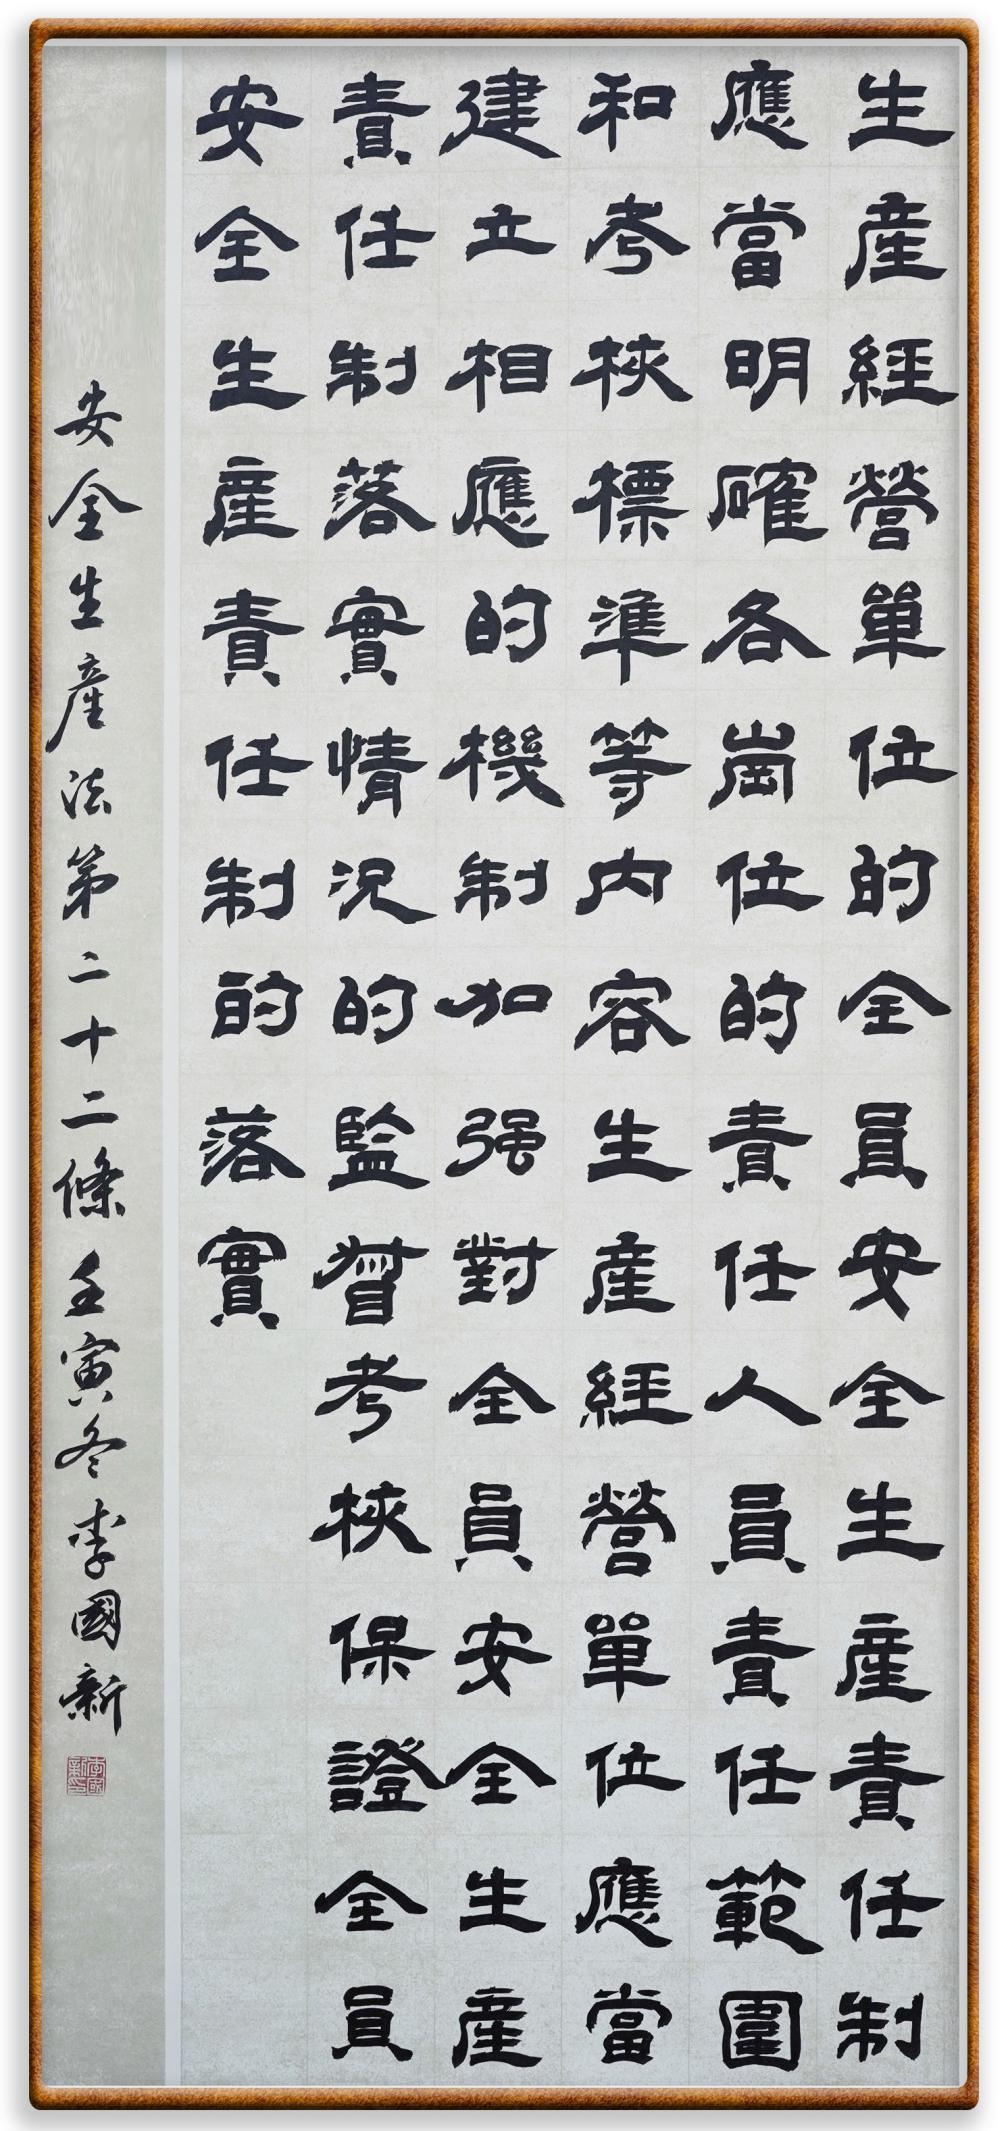 生產經營單位的全員安全生產責任制
應當明確各崗位的責任人員責任範圍
和考核標準等内容生產經營單位應當
建立相應的機制加强對全員安全生產
責任制落實情況的監督考核保證全員
安全生產責任制的落實
安全生產法第二十二條壬寅冬李國新
李國新印